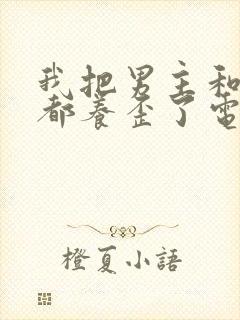 我把男主和
都养歪了电
橙夏小語